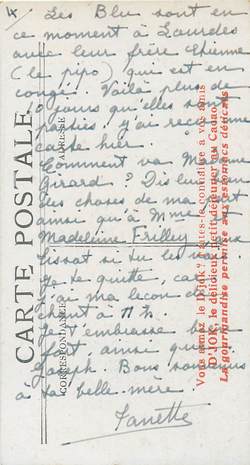 4/ Les Blu sont en
ce moment à Lourdes
avec leur frère Etienne
(le pipo) qui est en
congé. Voilà plus de
jours qu'elles sont
parties, j'ai reçu une
carte hier.
Comment va Madame
Girard ? Dis lui bien
des choses de ma part
ainsi qu'à Mme
Madeleine Frilley
si tu les vois.
Je te quitte, car
j'ai ma leçon de
chant à 11 h
Je t'embrasse bien
fort ainsi que
Joseph. Bons souvenirs
à ta belle-mère
Fanette
CARTE POSTALE
CORRESPONDANCE
ADRESSE
Vous aimez le D'jok, faites-le connaître à vos amis
D'JOK, le délicieux petit déjeuner au Cacao
La gourmandise permise aux estomacs délicats